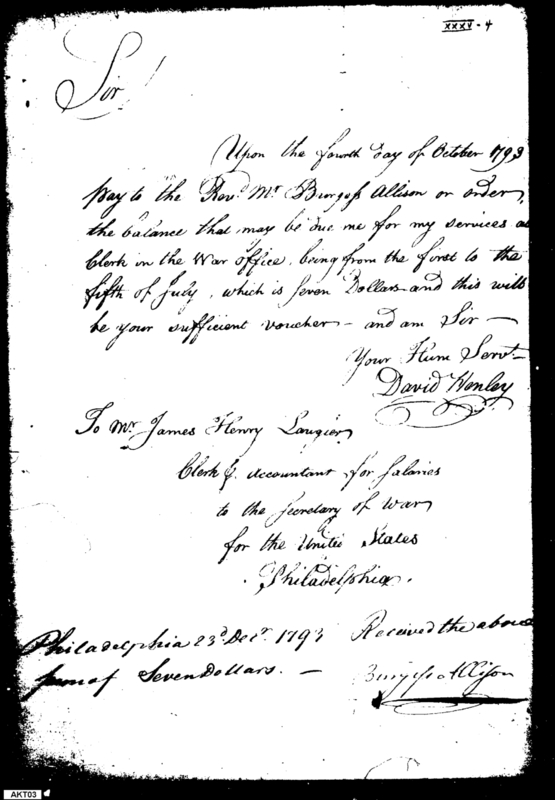 XXXV-4
Sir
Upon the fourth day of October 1793
pay to the Revd. Mr. Burgess Allison or order,
the balance that may be due me for my services as
Clerk in the War office, being from the first to the
fifth of July, which is seven Dollars and this will
be your sufficient voucher - and am Sir -
Your Hum Servt. -
David Henley
To Mr. James Henry Laugier
Clerk & Accountant for salaries
to the Secretary of War
for the United States
Philadelphia.
Philadelphia 23d Decr. 1793 Received the above
sum of Seven Dollars. -
Burgess Allison
AKT03